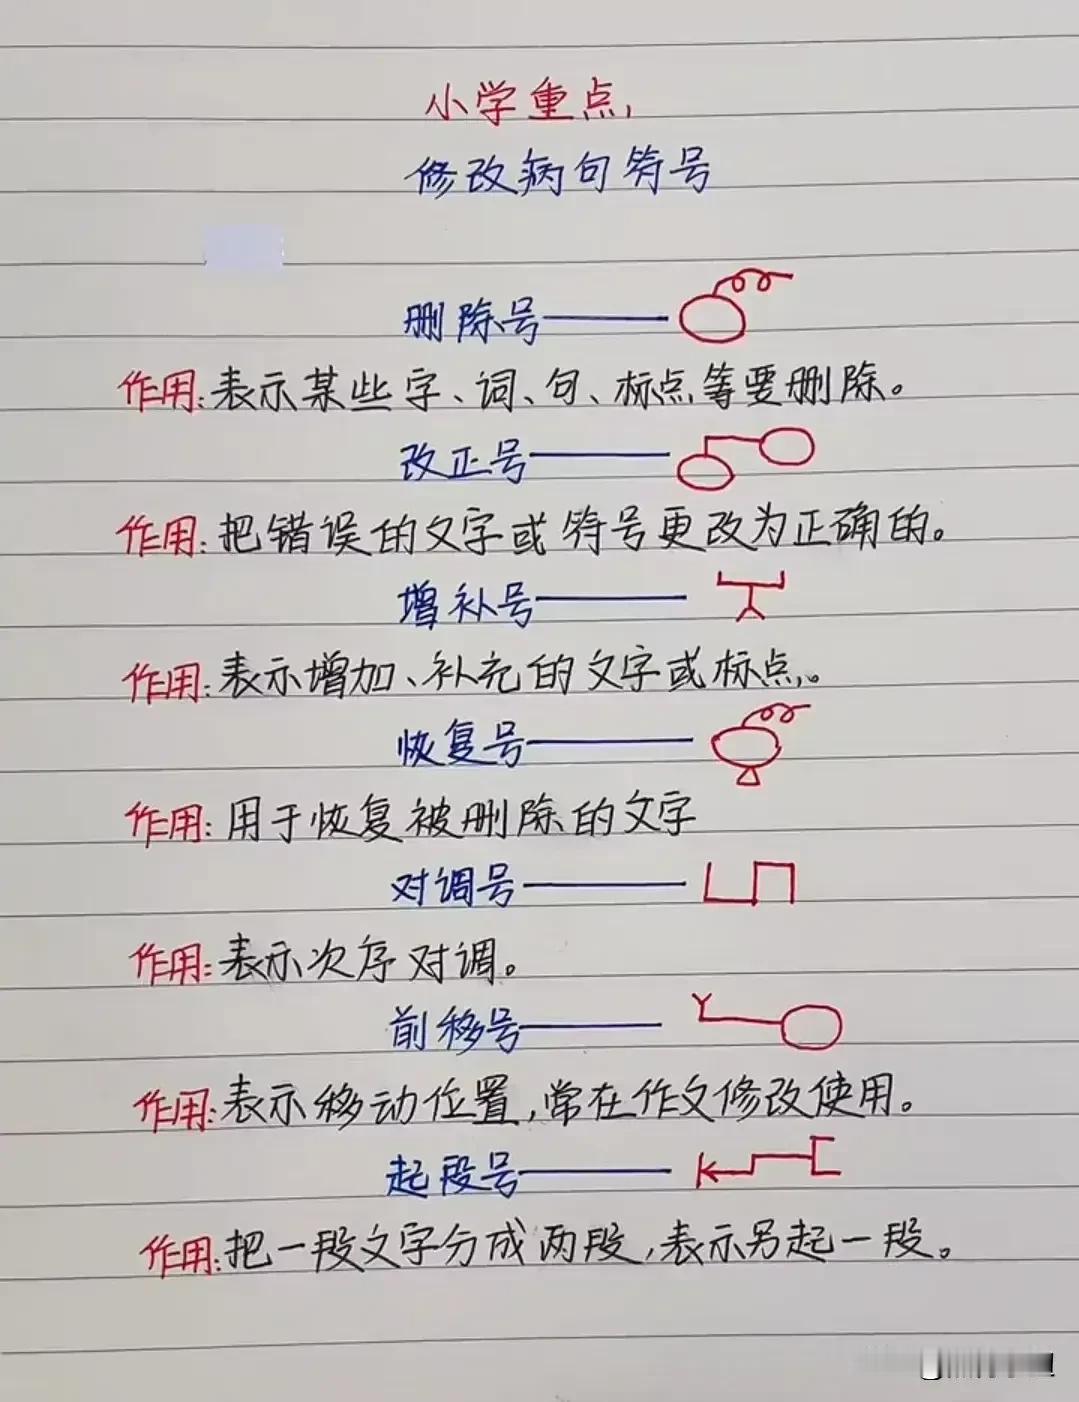 小学重点,
修改病句符号
删除号
作用:表示某些字、词、句、标点等要删除。
改正号
作用:把错误的文字或符号更改为正确的。
增补号
作用:表示增加、补充的文字或标点。
恢复号
作用:用于恢复被删除的文字
对调号
作用:表示次序对调。
前移号
作用:表示移动位置,常在作文修改使用。
起段号
作用:把一段文字分成两段,表示另起一段。